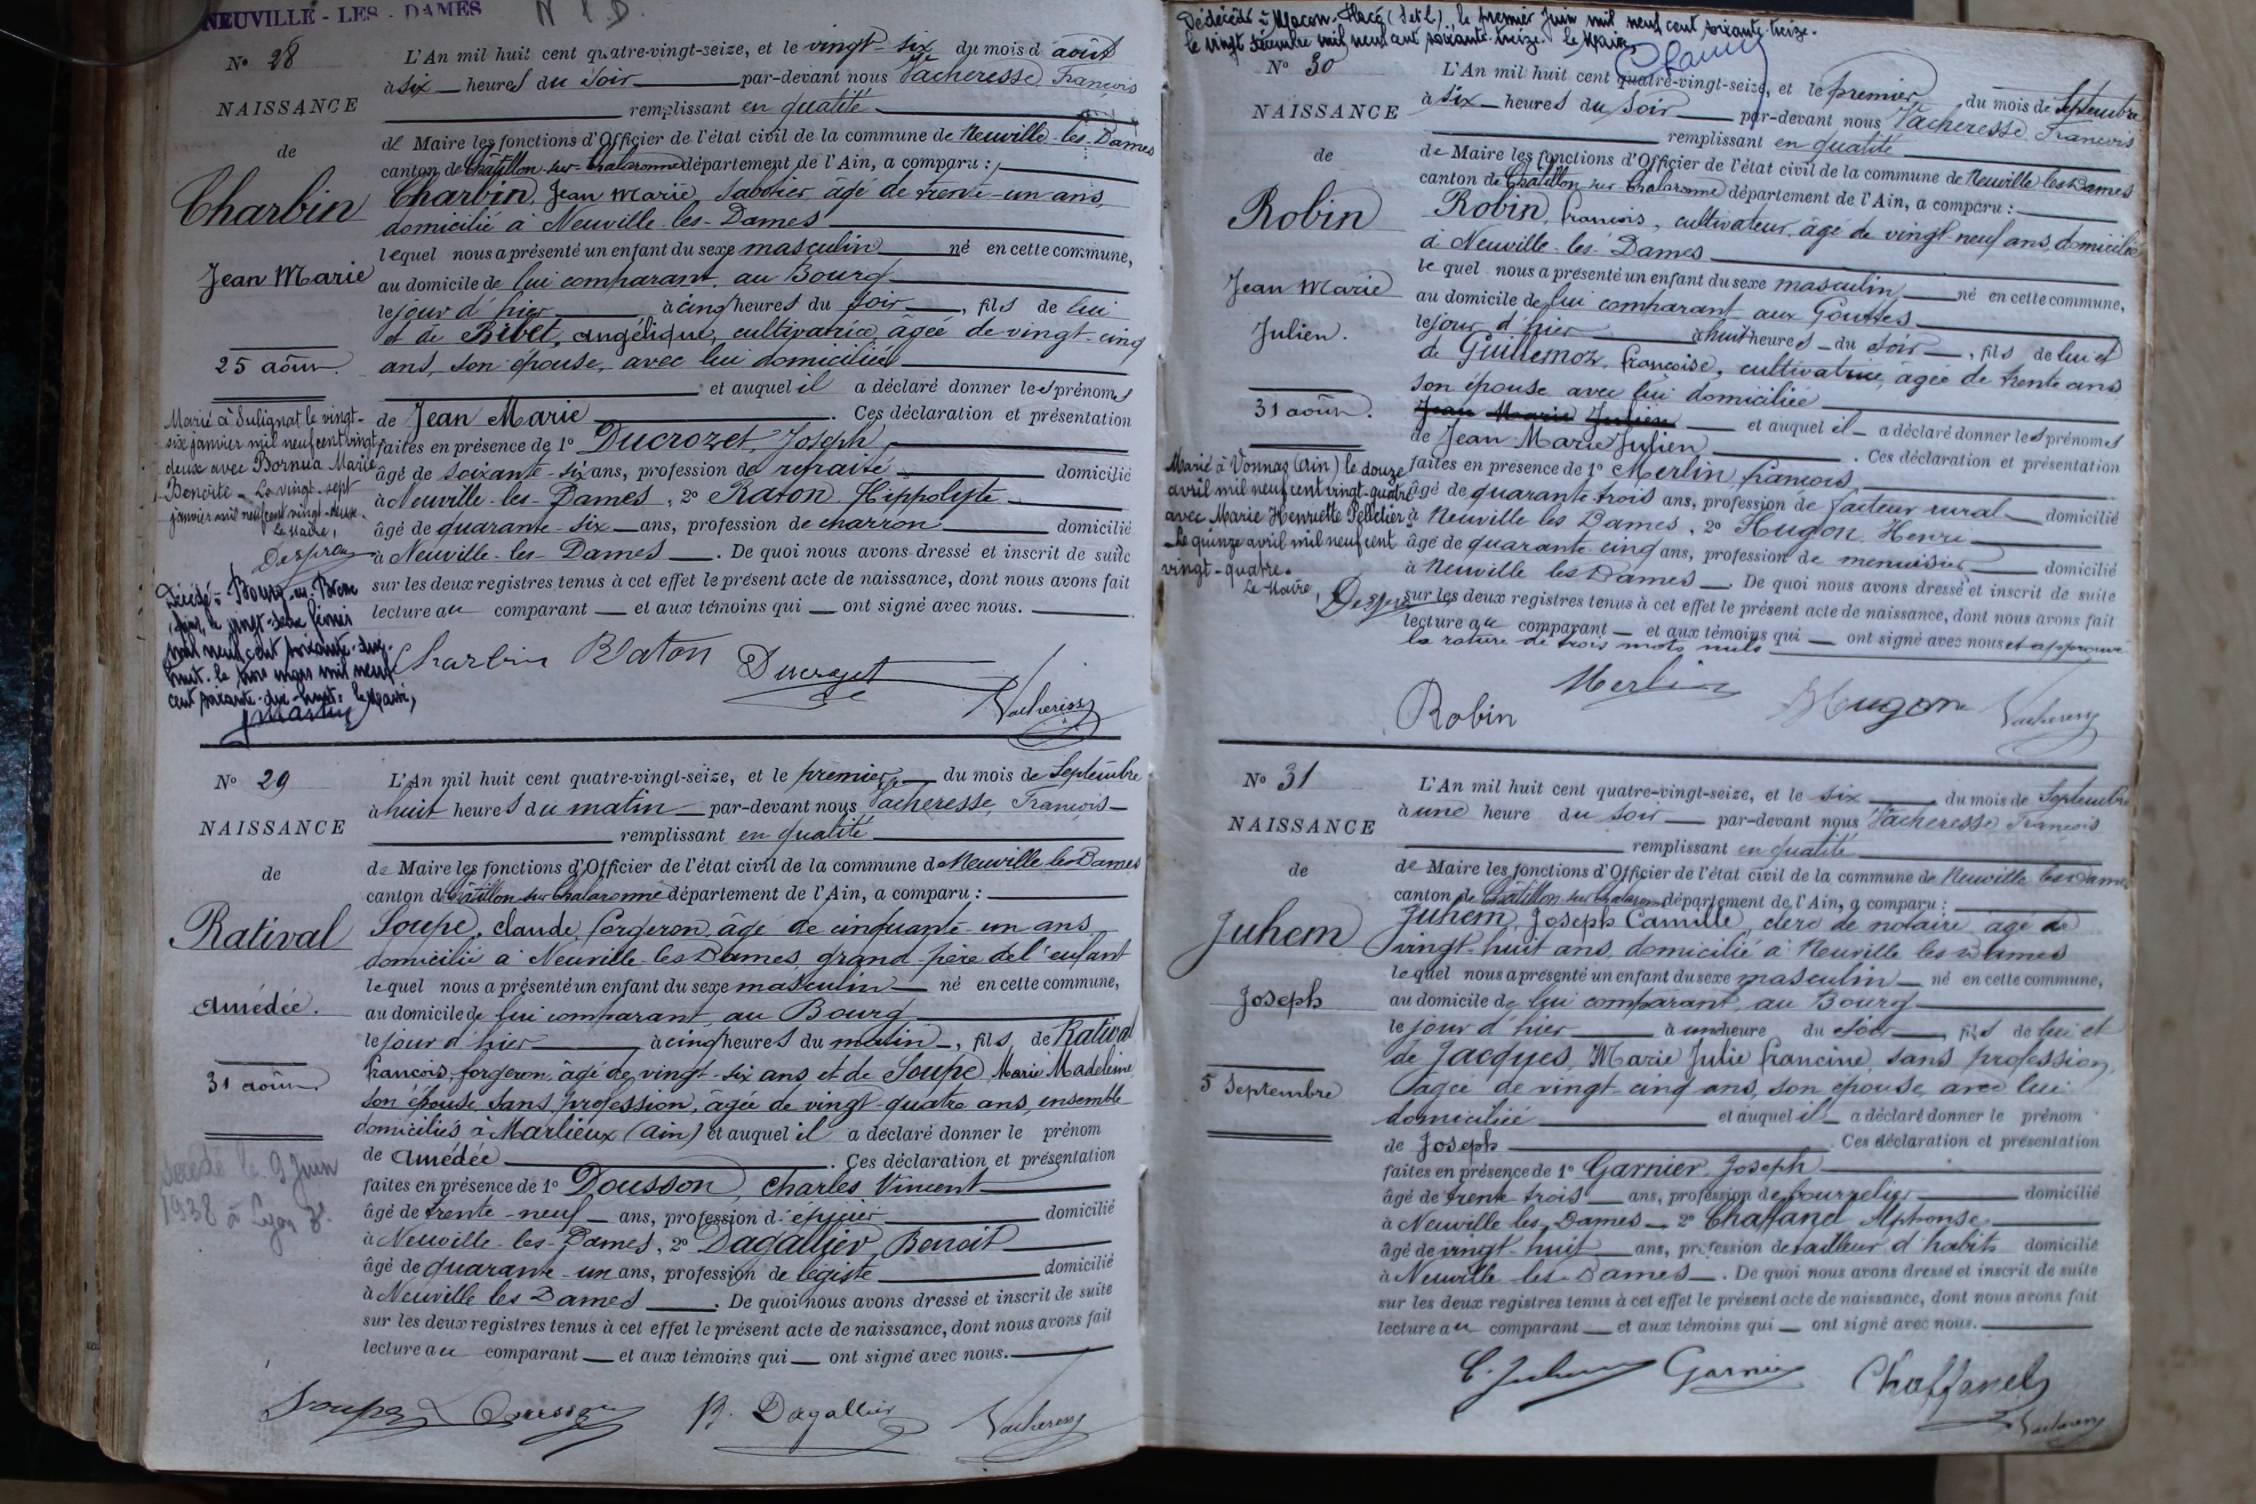 NEUVILLE - LES - DAMES
N 1 D.
N° 28
NAISSANCE
de
Charbin
Jean Marie
25 août.
Marié à Sulignat le vingt-
six janvier mil neuf cent vingt
deux avec Bornua Marie
Benoite - Le vingt-sept
janvier mil neuf cent vingt-deux.
Le Maire,
Décédé à Bourg-en-Bresse
mil neuf cent soixante-dix-
huit. le mars mil neuf
cent soixante-dix-huit. le Maire,
L'An mil huit cent quatre-vingt-seize, et le vingt-six du mois d août
à six heures du soir par-devant nous Vacheresse François
remplissant en qualité
de Maire les fonctions d'Officier de l'état civil de la commune de Neuville-les-Dames
canton de Châtillon-sur-Chalaronne département de l'Ain, a comparu :
Charbin, Jean Marie, sabotier, âgé de trente-un ans,
domicilié à Neuville-les-Dames
lequel nous a présenté un enfant du sexe masculin né en cette commune,
au domicile de lui comparant, au Bourg
le jour d'hier à cinq heures du soir, fils de lui
et de Bibet, angélique, cultivatrice, âgée de vingt-cinq
ans, son épouse, avec lui domiciliée
et auquel il a déclaré donner les prénoms
de Jean Marie. Ces déclaration et présentation
faites en présence de 1° Ducrozet, Joseph
âgé de soixante-six ans, profession de retraité domicilié
à Neuville-les-Dames, 2° Raton, Hippolyte
âgé de quarante-six ans, profession de charron domicilié
à Neuville-les-Dames. De quoi nous avons dressé et inscrit de suite
sur les deux registres tenus à cet effet le présent acte de naissance, dont nous avons fait
lecture au comparant et aux témoins qui ont signé avec nous.
Charbin Raton Ducrozet Vacheresse
N° 29
NAISSANCE
de
Ratival
Amédée.
31 août
Décédé le 9 Juin
1938 à Lyon 3e.
L'An mil huit cent quatre-vingt-seize, et le premier du mois de Septembre
à huit heures du matin par-devant nous Vacheresse, François
remplissant en qualité
de Maire les fonctions d'Officier de l'état civil de la commune de Neuville les Dames
canton de Châtillon sur Chalaronne département de l'Ain, a comparu :
Soupe, claude, forgeron, âgé de cinquante-un ans
domicilié à Neuville-les Dames, grand-père de l'enfant
lequel nous a présenté un enfant du sexe masculin né en cette commune,
au domicile de lui comparant, au Bourg
le jour d'hier à cinq heures du matin, fils de Ratival
françois, forgeron, âgé de vingt-six ans et de Soupe, Marie Madeleine
son épouse, sans profession, âgée de vingt-quatre ans, ensemble
domiciliés à Marlieux (ain) et auquel il a déclaré donner le prénom
de Amédée. Ces déclaration et présentation
faites en présence de 1° Dousson, Charles Vincent
âgé de trente-neuf ans, profession d'épicier domicilié
à Neuville-les-Dames, 2° Dagallier, Benoit
âgé de quarante-un ans, profession de légiste domicilié
à Neuville les Dames. De quoi nous avons dressé et inscrit de suite
sur les deux registres tenus à cet effet le présent acte de naissance, dont nous avons fait
lecture au comparant et aux témoins qui ont signé avec nous.
Soupe Dousson B. Dagallier Vacheresse
Dédécédé à Macon-Flacé (S et L), le premier Juin mil neuf cent soixante-treize.
le vingt décembre mil neuf cent soixante-treize. le Maire
N° 30
NAISSANCE
de
Robin
Jean Marie
Julien.
31 août.
Marié à Vonnas (Ain) le douze
avril mil neuf cent vingt-quatre
avec Marie Henriette Pelletier
Le quinze avril mil neuf cent
vingt-quatre.
Le Maire,
L'An mil huit cent quatre-vingt-seize, et le premier du mois de Septembre
à six heures du soir par-devant nous Vacheresse, François
remplissant en qualité
de Maire les fonctions d'Officier de l'état civil de la commune de Neuville les Dames
canton de Châtillon sur Chalaronne département de l'Ain, a comparu :
Robin, françois, cultivateur, âgé de vingt-neuf ans, domicilié
à Neuville-les-Dames
lequel nous a présenté un enfant du sexe masculin né en cette commune,
au domicile de lui comparant aux Gouttes
le jour d'hier à huit heures du soir, fils de lui et
de Guillemoz, françoise, cultivatrice, âgée de trente ans
son épouse avec lui domiciliée
Jean Marie Julien et auquel il a déclaré donner les prénoms
de Jean Marie Julien. Ces déclaration et présentation
faites en présence de 1° Merlin, françois
âgé de quarante trois ans, profession de facteur rural domicilié
à Neuville les Dames, 2° Hugon, Henri
âgé de quarante cinq ans, profession de menuisier domicilié
à Neuville les Dames. De quoi nous avons dressé et inscrit de suite
sur les deux registres tenus à cet effet le présent acte de naissance, dont nous avons fait
lecture au comparant et aux témoins qui ont signé avec nous et approuvé
la rature de trois mots nuls
Robin Merlin Hugon Vacheresse
N° 31
NAISSANCE
de
Juhem
Joseph
5 Septembre
L'An mil huit cent quatre-vingt-seize, et le six du mois de Septembre
à une heure du soir par-devant nous Vacheresse François
remplissant en qualité
de Maire les fonctions d'Officier de l'état civil de la commune de Neuville les Dames
canton de Châtillon sur Chalaronne département de l'Ain, a comparu :
Juhem, Joseph Camille, clerc de notaire, âgé de
vingt-huit ans, domicilié à Neuville les Dames
lequel nous a présenté un enfant du sexe masculin né en cette commune,
au domicile de lui comparant, au Bourg
le jour d'hier à une heure du soir, fils de lui et
de Jacques, Marie Julie francine, sans profession,
âgée de vingt-cinq ans, son épouse, avec lui
domiciliée et auquel il a déclaré donner le prénom
de Joseph. Ces déclaration et présentation
faites en présence de 1° Garnier, Joseph
âgé de trente trois ans, profession de bourrelier domicilié
à Neuville les Dames 2° Chaffanel, Alphonse
âgé de vingt-huit ans, profession de tailleur d'habits domicilié
à Neuville-les-Dames. De quoi nous avons dressé et inscrit de suite
sur les deux registres tenus à cet effet le présent acte de naissance, dont nous avons fait
lecture au comparant et aux témoins qui ont signé avec nous.
C. Juhem Garnier Chaffanel
Vacheresse